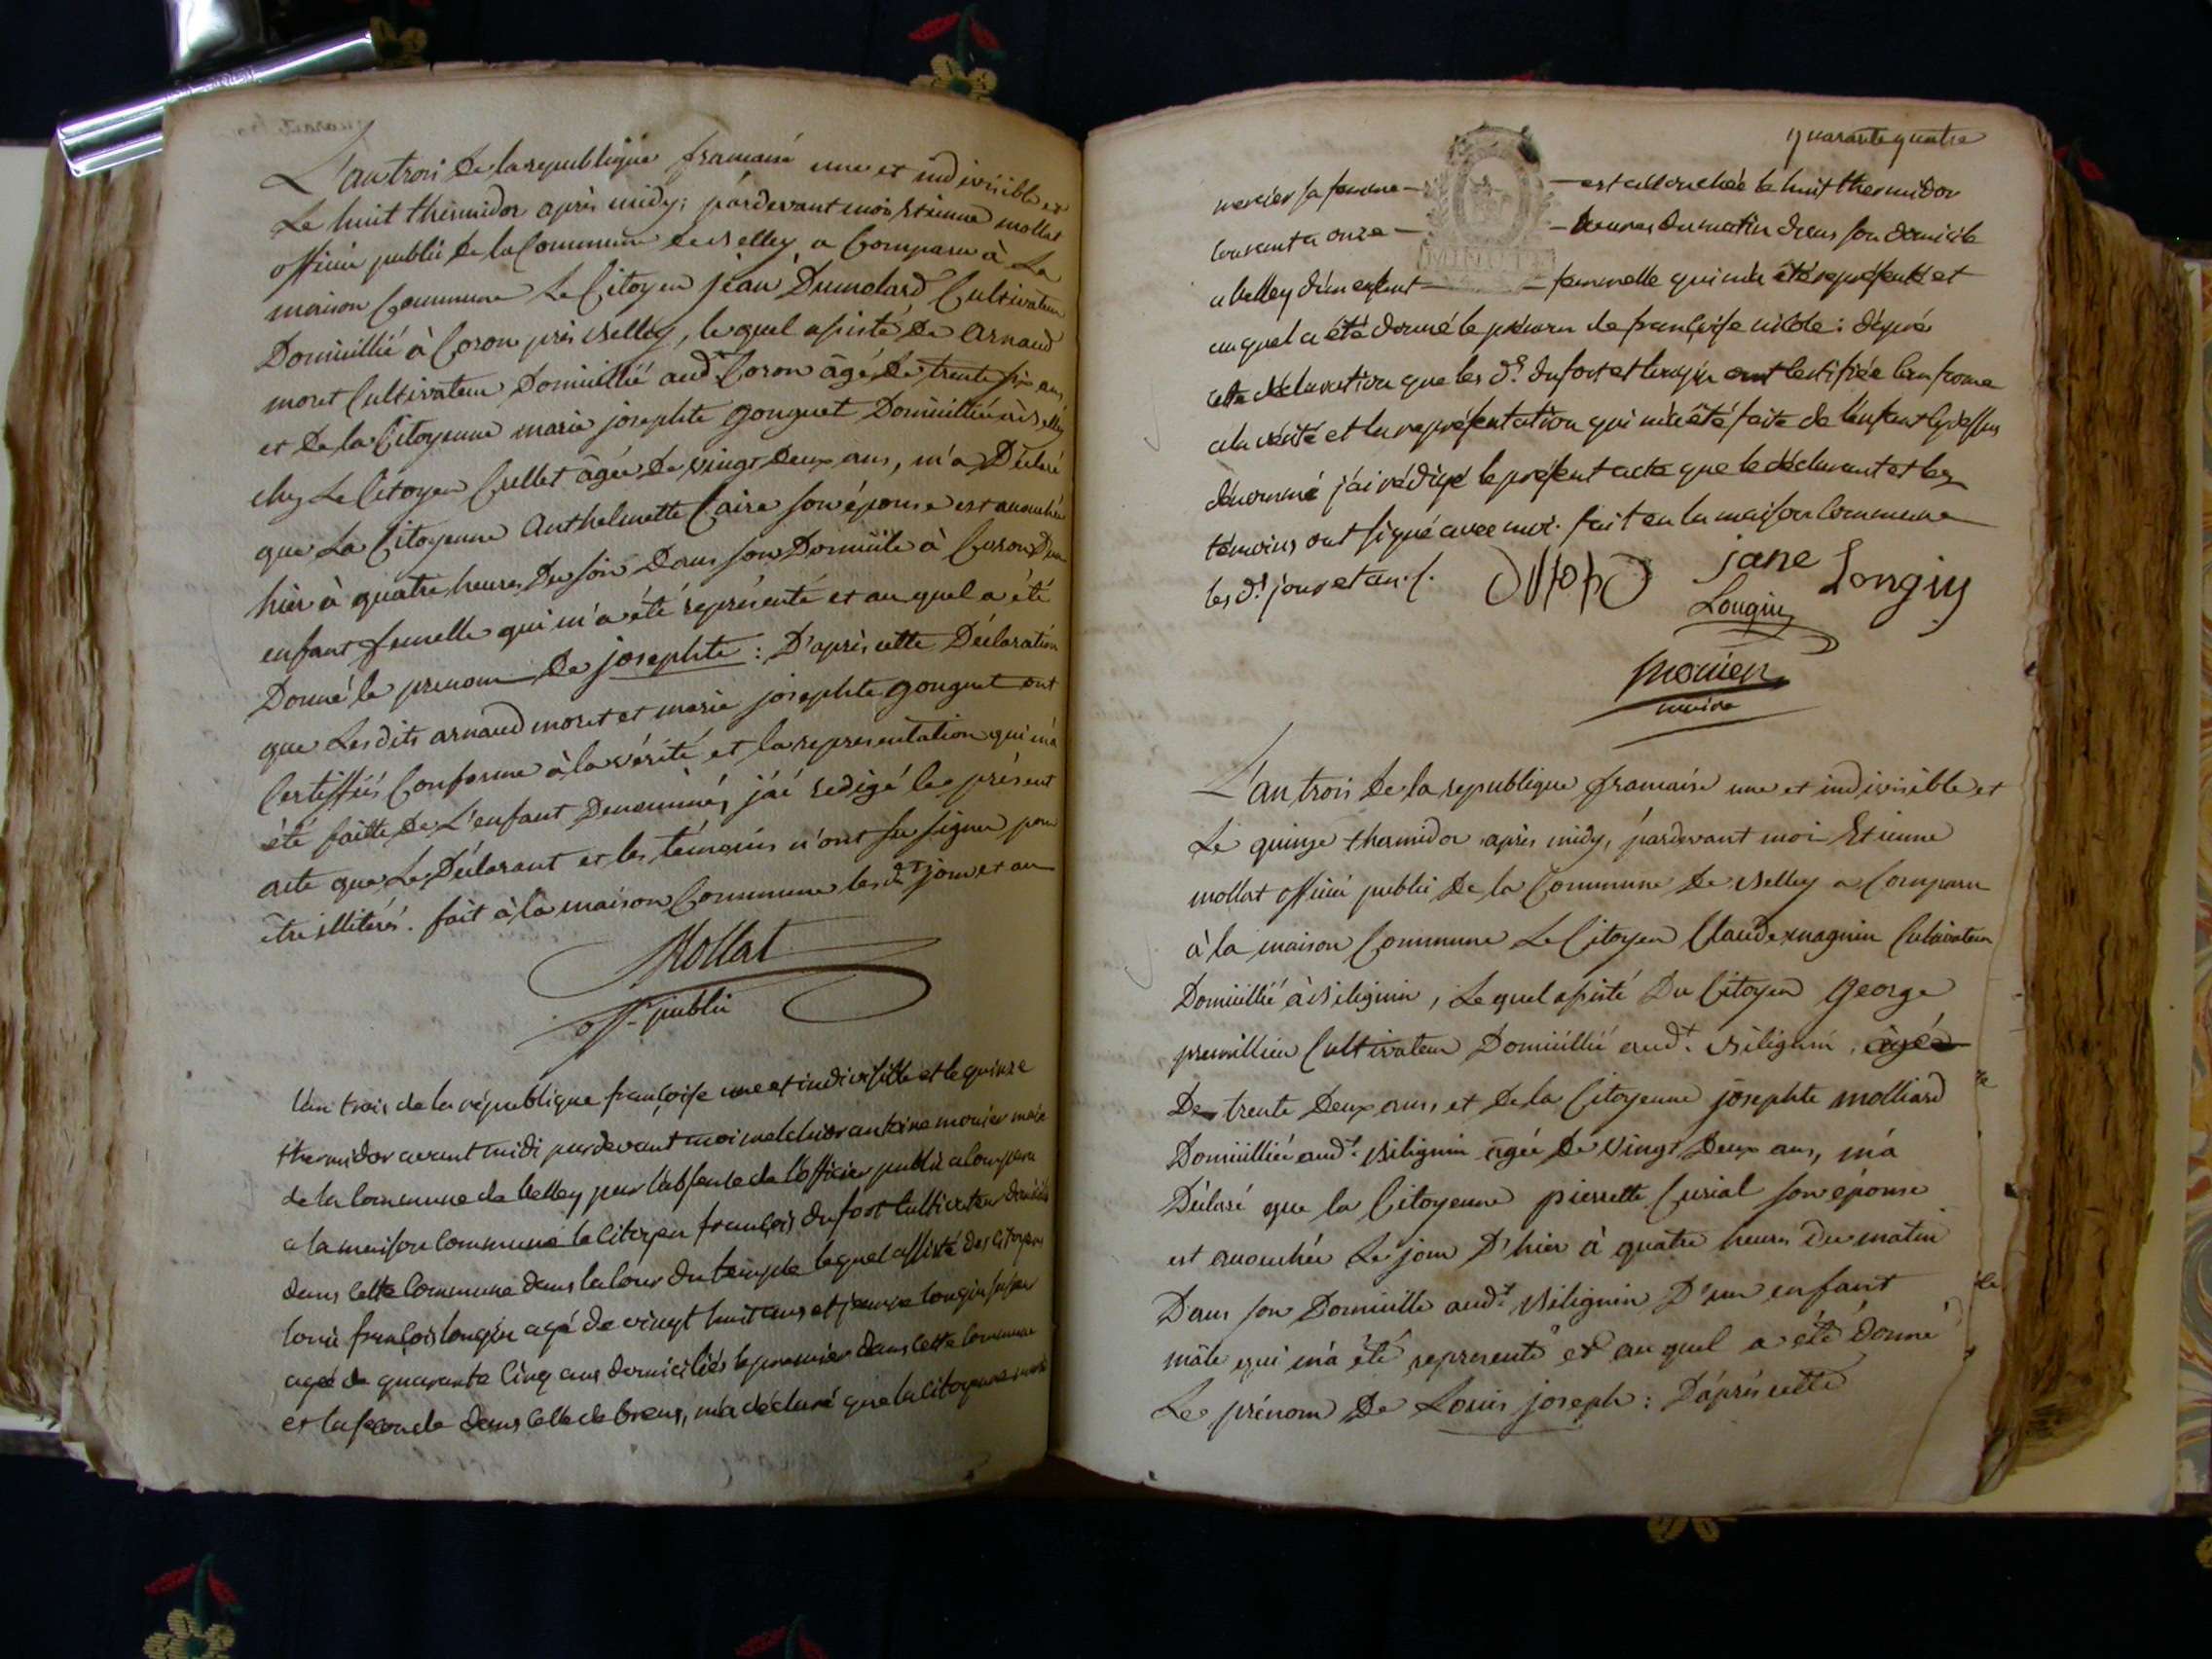 L'an trois de la republique francaise une et indivisible et
Le huit thermidor après midy; pardevant moi Etienne mollat
officier public de la Commune de Belley a Comparu à La
maison Commune Le Citoyen jean Dumolard Cultivateur
Domicillié à Coron près Belley, lequel assisté de Arnaud
moret Cultivateur Domicillié aud.t Coron âgé de trente six ans,
et de la Citoyenne marie josephte gonguet Domicilliée à Belley
chez Le Citoyen Crellet âgée de vingt Deux ans, m'a Déclaré
que La Citoyenne Anthelmette Caire son épouse est accouchée
hier à quatre heures Du soir Dans son Domicile à Coron D'un
enfant femelle qui m'a été représenté et au quel a été
Donné le prenom de josephte : D'après cette Déclaration
que Lesdits arnaud moret et marie josephte gonguet ont
Certiffiés Conforme à la vérité et la representation qui m'a
été faitte De L'enfant Denommé, j'ai redigé le présent
acte que Le Déclarant et les témoins n'ont su signer pour
être illitérés. fait à la maison Commune lesd.ts jour et an
Mollat
off. public
L'an trois de la république françoise une et indivisible et le quinze
thermidor avant midi pardevant moi melchior antoine monier maire
de la commune de belley pour l'absence de l'officier public a comparu
a la maison commune le citoyen françois dufort cultivateur domicilié
dans cette commune dans la cour du temple lequel assisté des citoyens
louis françois longin agé de vingt huit ans et jeanne longin sa sœur
agée de quarante cinq ans domiciliés le premier dans cette commune
et la seconde dans celle de brens, m'a déclaré que la citoyenne marie
quarante quatre
mercier sa femme — est accouchée le huit thermidor
courant a onze — heures du matin dans son domicile
a belley d'un enfant — femmelle qui m'a été représenté et
auquel a été donné le prénom de françoise : d'après
cette déclaration que les d.s dufort et longin ont certifiée conforme
a la vérité et la représentation qui m'a été faite de l'enfant cy dessus
dénommé j'ai rédigé le présent acte que le déclarant et les
témoins ont signé avec moi. fait en la maison commune
les d.s jour et an.
jane Longin
Longin
monier
maire
L'an trois de la republique francaise une et indivisible et
Le quinze thermidor après midy, pardevant moi Etienne
mollat officier public de la Commune de Belley a Comparu
à la maison Commune Le Citoyen Claude magnin Cultivateur
Domicillié à Biliguin, Lequel assisté Du Citoyen George
premillieu Cultivateur Domicillié aud.t Biliguin, âgé
De trente Deux ans, et De la Citoyenne josephte molliard
Domicilliée aud.t Biliguin âgée De vingt Deux ans, m'a
Déclaré que la Citoyenne pierrette Curial son épouse
est accouchée Le jour D'hier à quatre heures Du matin
Dans son Domicille aud.t Biliguin D'un enfant
mâle qui m'a été representé et au quel a été Donné
Le prénom De Louis joseph : D'après cette